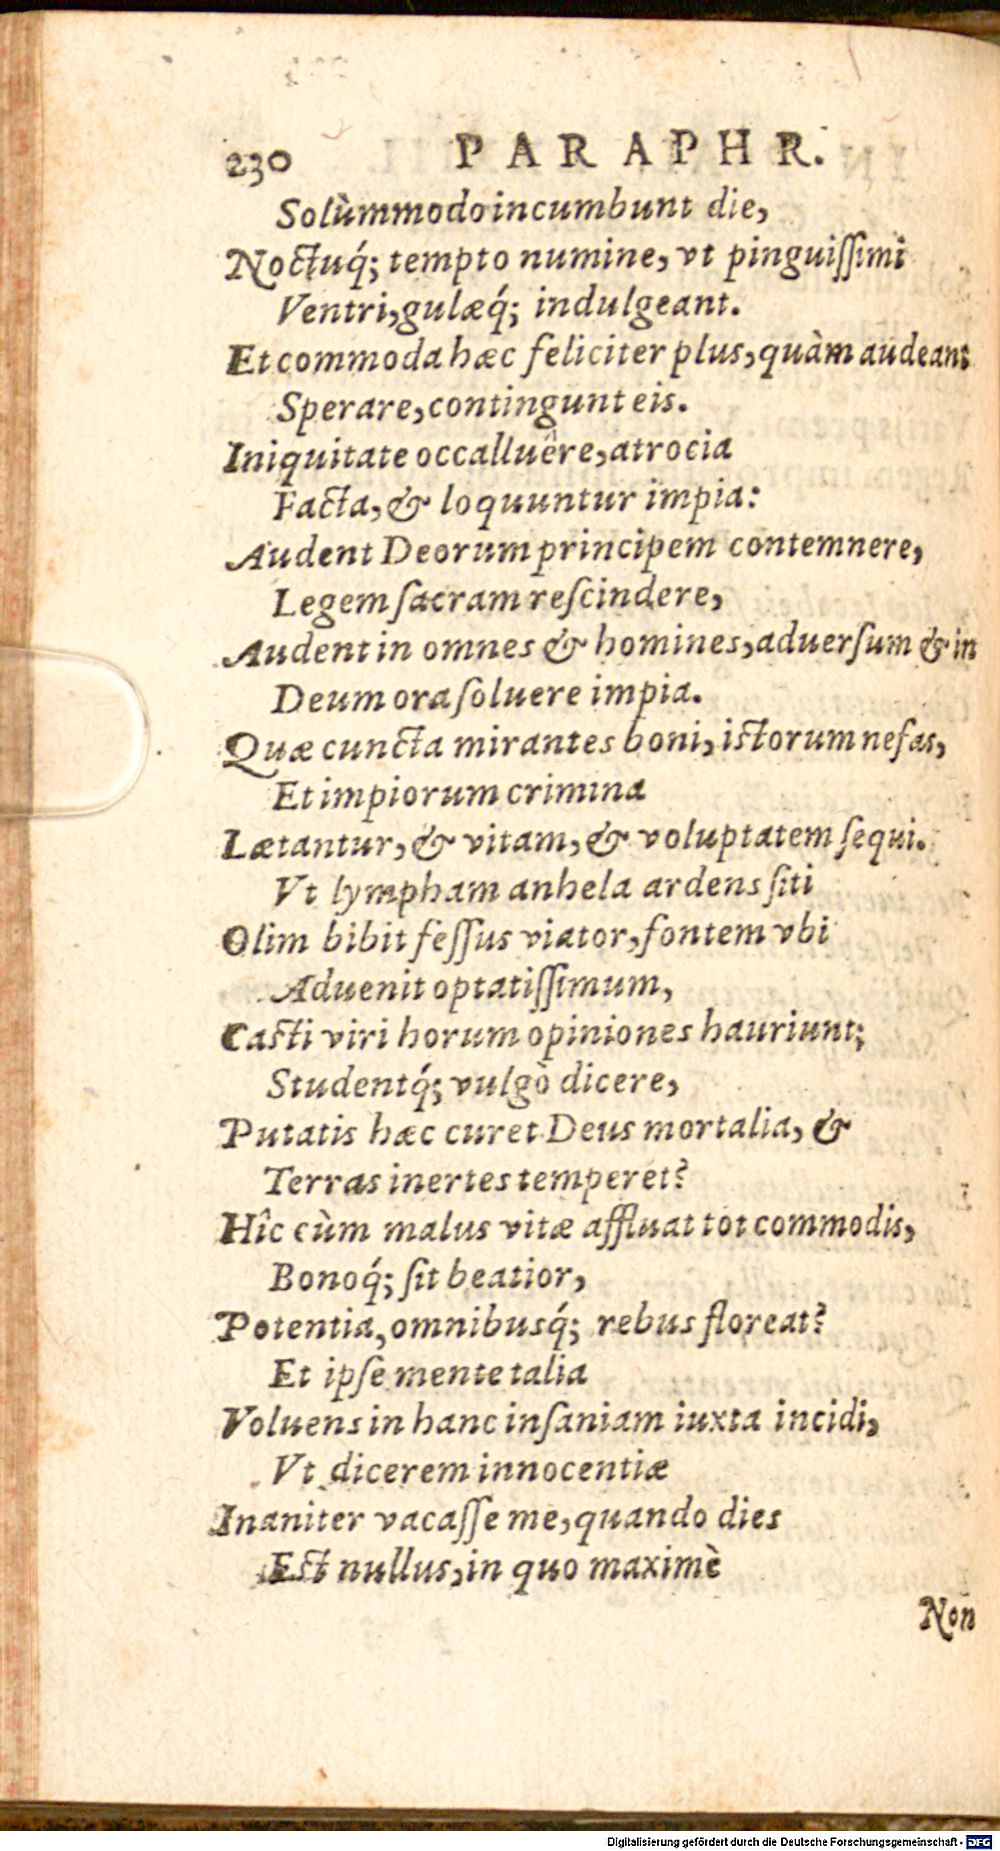 230 PARAPHR.
Solùmmodo incumbunt die,
Noctuq́; tempto numine, vt pinguiſſimi
Ventri, gulæq́; indulgeant.
Et commoda hæc feliciter plus, quàm audeant
Sperare, contingunt eis.
Iniquitate occalluêre, atrocia
Facta, & loquuntur impia:
Audent Deorum principem contemnere,
Legem ſacram reſcindere,
Audent in omnes & homines, aduerſum & in
Deum ora ſoluere impia.
Quæ cuncta mirantes boni, istorum nefas,
Et impiorum crimina
Lætantur, & vitam, & voluptatem ſequi.
Vt lympham anhela ardens ſiti
Olim bibit feſſus viator, fontem vbi
Aduenit optatiſſimum,
Casti viri horum opiniones hauriunt;
Studentq́; vulgò dicere,
Putatis hæc curet Deus mortalia, &
Terras inertes temperet?
Hîc cùm malus vitæ affluat tot commodis,
Bonoq́; ſit beatior,
Potentia, omnibusq́; rebus floreat?
Et ipſe mente talia
Voluens in hanc inſaniam iuxta incidi,
Vt dicerem innocentiæ
Inaniter vacaſſe me, quando dies
Est nullus, in quo maximè
Non
Digitalisierung gefördert durch die Deutsche Forschungsgemeinschaft - DFG